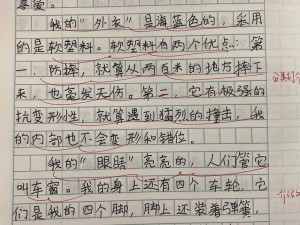 喜爱。
我的“外衣”是海蓝色的，采用
的是软塑料。软塑料有两个优点：第
一，防摔，就算从两百米的地方摔下
来，也毫发无伤。第二，它有极强的
抗变形性，就算遇到猛烈的撞击，我
的内部也不会变形和错位。
我的“眼睛”亮亮的，人们管它
叫车窗。我的身上还有四个车轮，它
们是我的四个脚，脚上还装着弹簧，